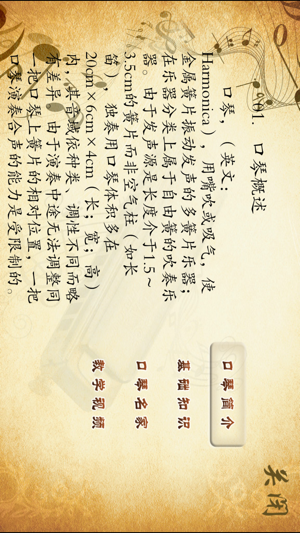 关闭
口琴简介
基础知识
口琴名家
教学视频
001. 口琴概述
口琴,(英文:
Harmonica),用嘴吹或吸气,使
金属簧片振动发声的多簧片乐器;
在乐器分类上属于自由簧的吹奏乐
器。由于发声源是长度介于1.5~
3.5cm的簧片而非空气柱(如长
笛),独奏用口琴体积多在
20cm×6cm×4cm(长;宽;高)
内,其音域依种类、调性不同而略
有差异。由于演奏中途无法调整同
一把口琴上簧片的相对位置,一把
口琴演奏合声的能力是受限制的。